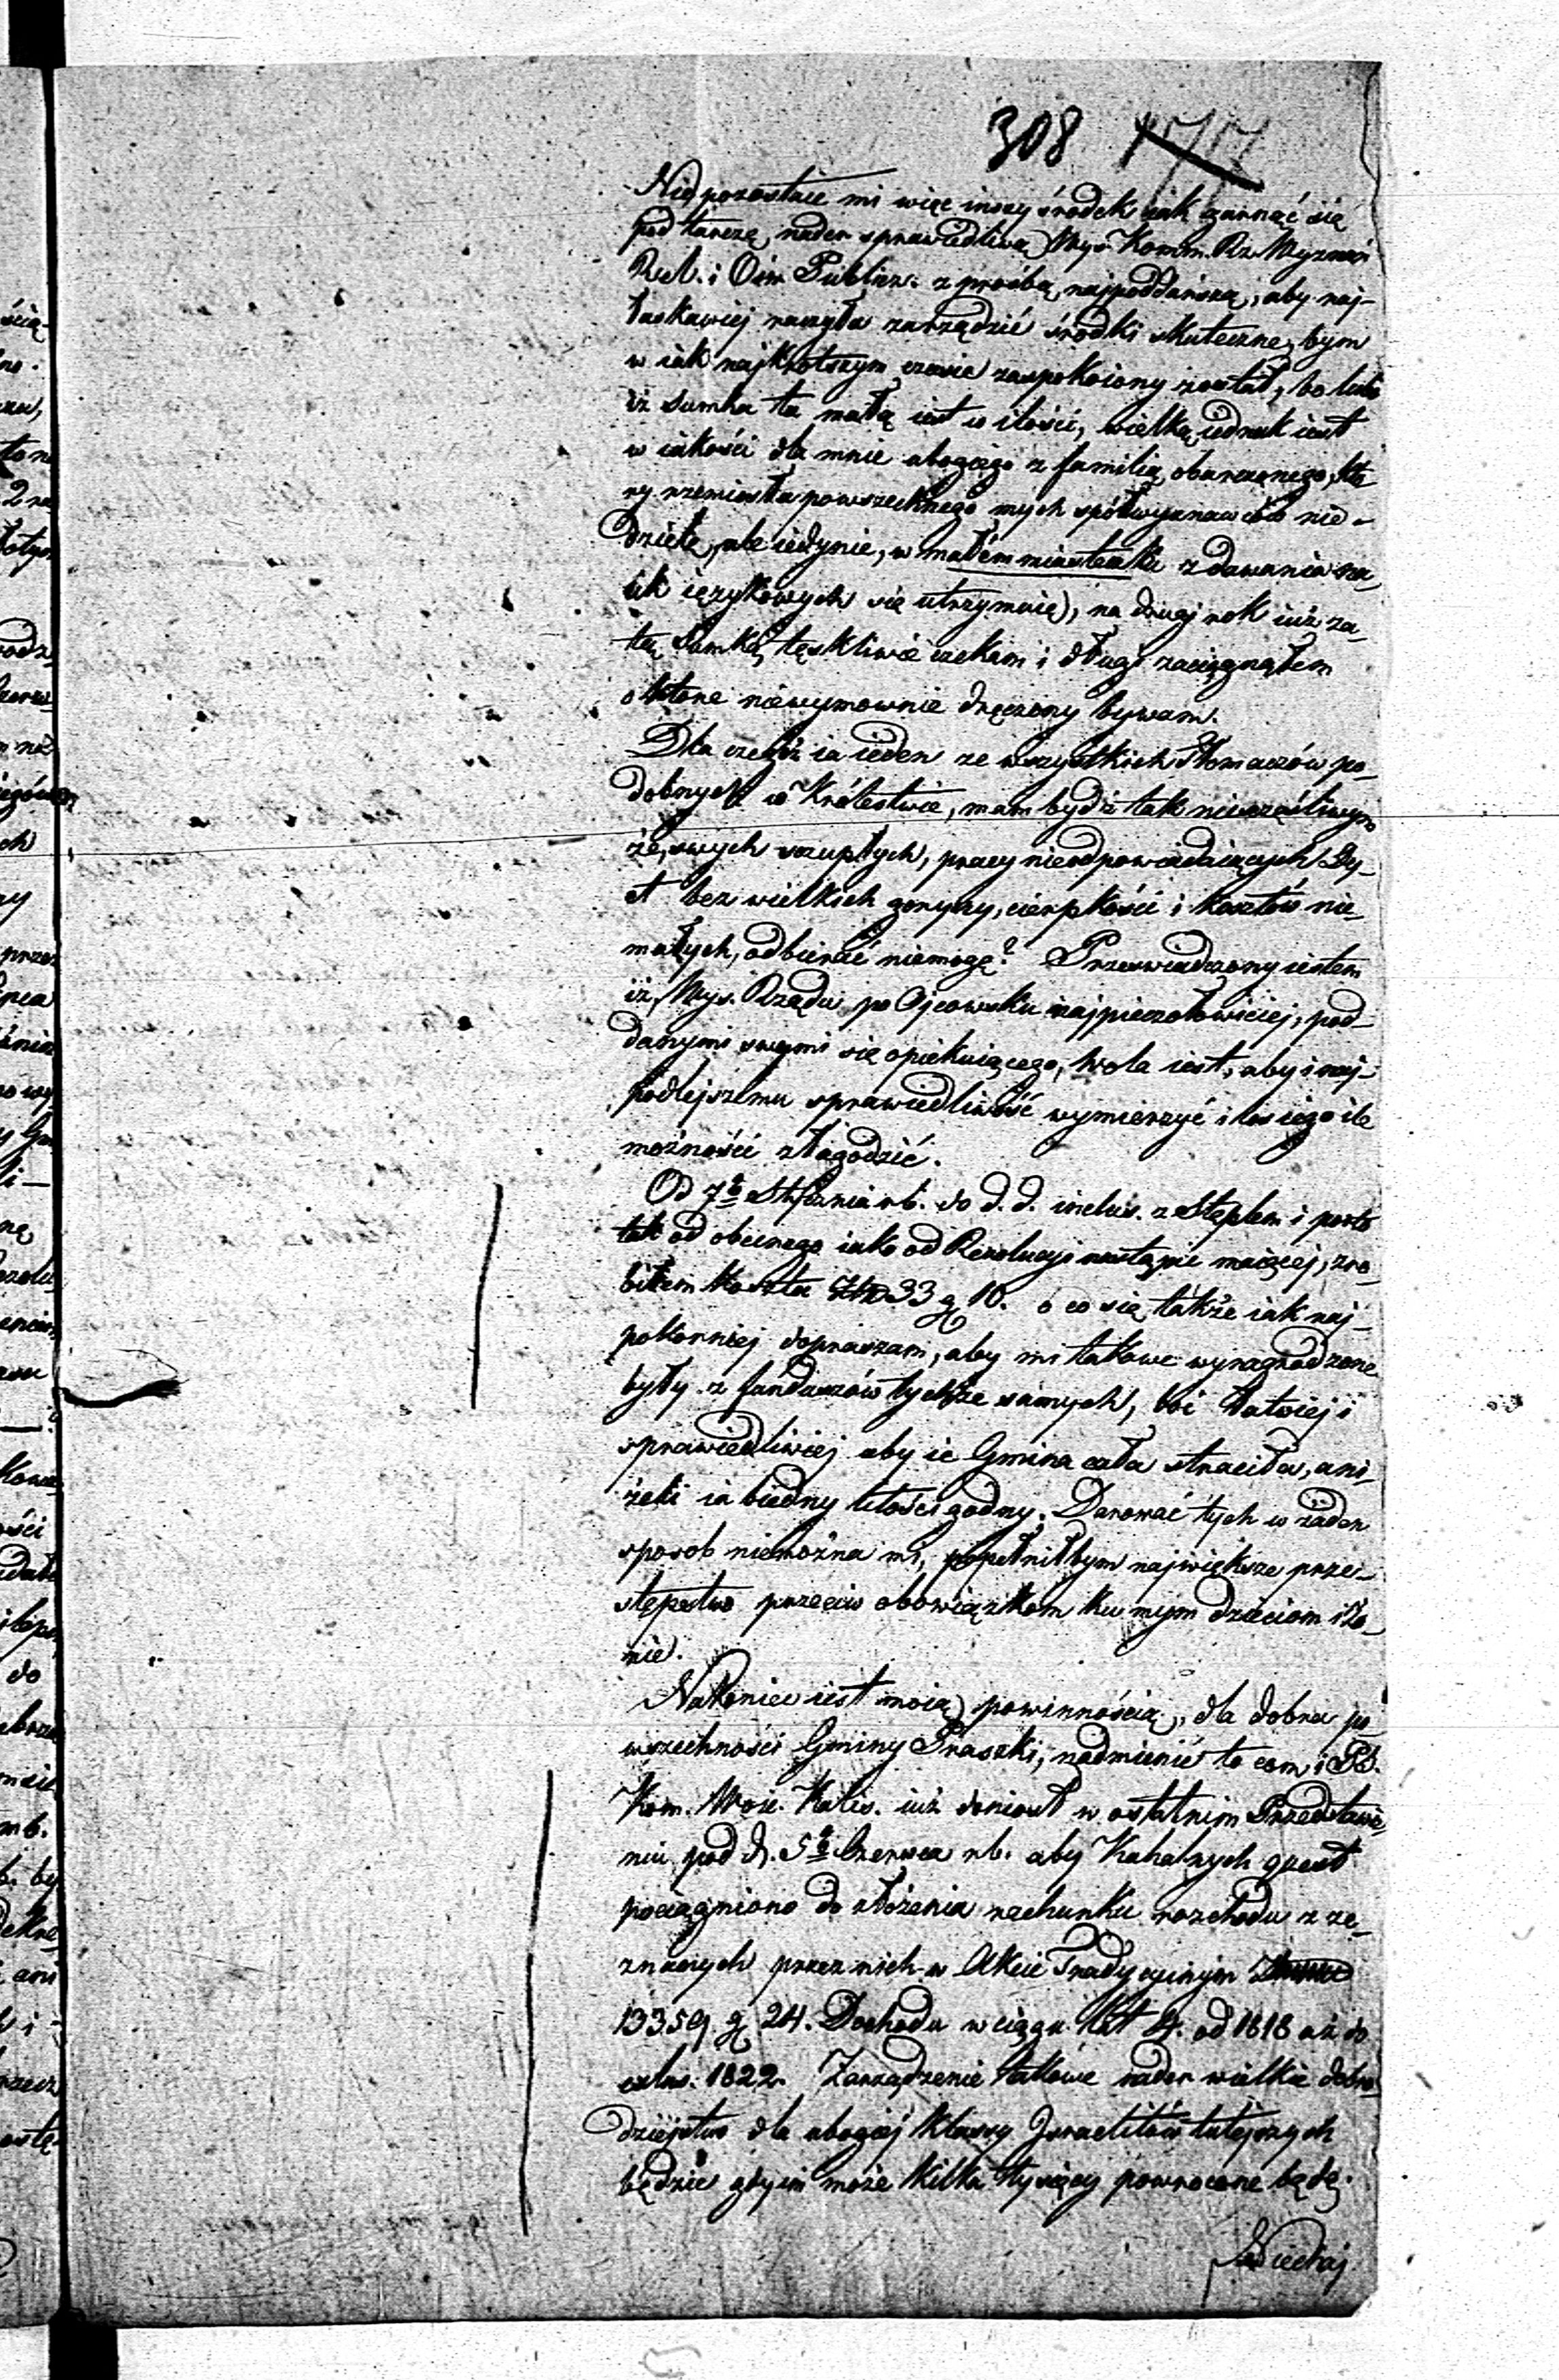 308 177
Nie pozostaie mi więc inszy środek iak garnąć się
pod tarczę nader sprawiedliwą Wys. Komm. Rz. Wyznań
Rel. i Ośw. Publicz. z prośbą najpoddańszą, aby naj-
łaskawiej raczyła zarządzić środki skuteczne, bym
w iak najkrotszym czasie zaspokoiony został, bo lubo
iż Sumka ta małą iest w ilości, wielką iednak iest
w iakości dla mnie ubogiego z familią obarczonego, któ-
ry rzemiosła powszechnego mych spółwyznawców nie-
dzielę, ale iedynie, w małém miasteczku z dawania na-
uk ięzykowych się utrzymuię), na drugi rok iuż za
tą Sumką tęskliwie czekam i długi zaciągnąłem
o które niewymownie dręczony bywam.
Dla czegóż ia ieden ze wszystkich Tłomaczów po-
dobnych w Królestwie, mam bydź tak nieszczęśliwym
że, swych szczupłych, pracy nieodpowiadaiących Dy-
et bez wielkich goryczy, cierpkości i kosztów nie
małych, odbierać niemogę? Przeswiadczony iestem
iż, Wys. Rządu po Ojcowsku najpieczołowiciej, pod-
danymi swymi się opiekuiącego, wola iest, aby i naj-
podlejszemu sprawiedliwość wymierzyć i los iego ile
możności złagodzić.
Od 7º Stycznia rb. do d. d. inclus. z Stęplem i porto
tak od obecnego iako od Rezolucyi nastąpić maiącej, zro-
biłem koszta Złp 33 g 10. o co się także iak naj-
pokorniej dopraszam, aby mi takowe wynagrodzone
były z funduszów tychże samych, boć łatwiej i
sprawiedliwiej aby ie Gmina cała straciła, ani-
żeli ia biedny litości godny. Darować tych w żaden
sposob niemożna mi, popełniłbym największe prze-
stępstwo przeciw obowiązkom ku mym dzieciom i żo-
nie.
Nakoniec iest moią powinnością, dla dobra po-
wszechności Gminy Praszki, nadmienić to com i
Kom. Woie. Kalis. iuż doniosł w ostatnim Przedstawie-
niu pod d. 5º Czerwca rb. aby Kahalnych
pociągniono do złożenia rachunku rozchodu z ze-
znanych przez nich w Akcie Tradycyinym
13359 g 24. Dochodu w ciągu lat 4. od 1818 aż do
exlus. 1822. Zarządzenie takowe nader wielkie dobro-
dziejstwo dla ubogiej klassy Jsraelitów tutejszych
będzie gdy im może kilka tysięcy powrocone będą.
Niechaj